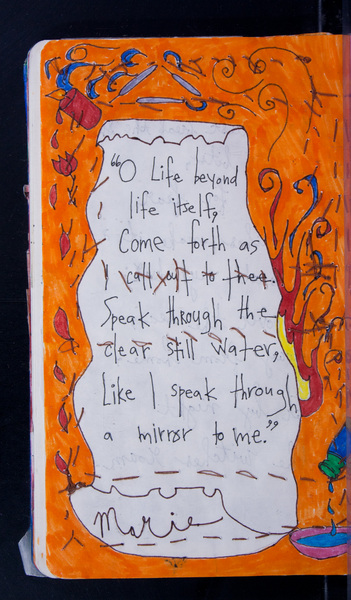 "O Life beyond
life itself,
Come forth as
I call out to thee.
Speak through the
clear still water,
Like I speak through
a mirror to me."
Marie